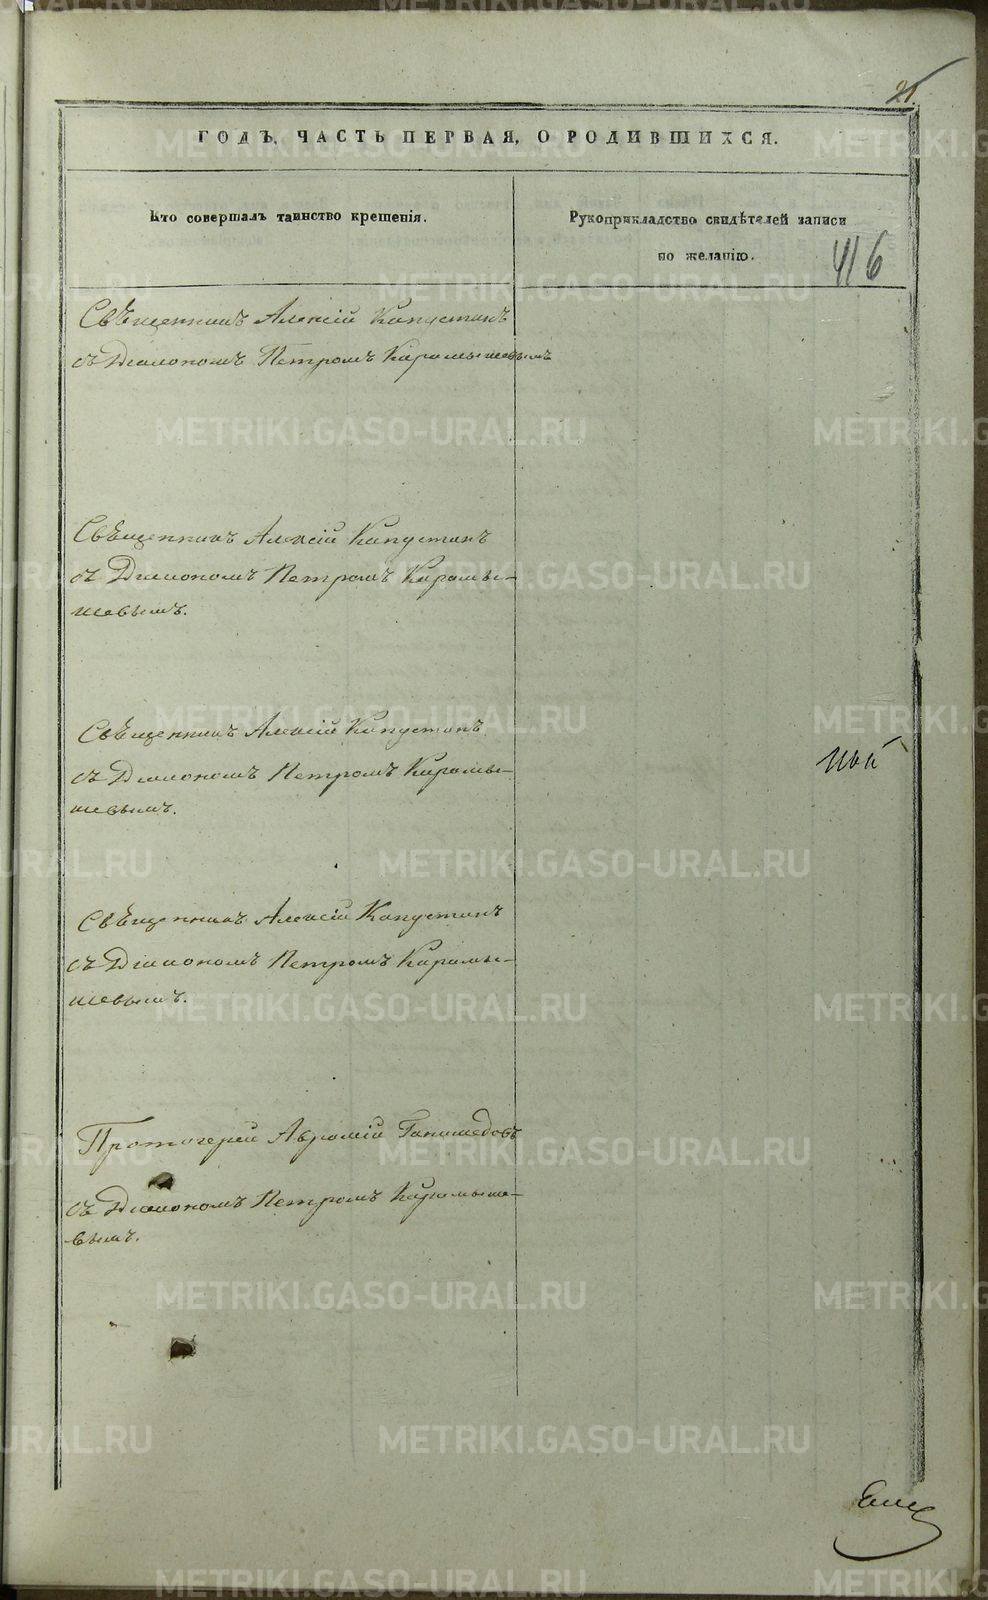 ГОДЪ, ЧАСТЬ ПЕРВАЯ, О РОДИВШИХСЯ.
Кто совершалъ таинство крещенія.
Рукоприкладство свидѣтелей записи
по желанію.
416
Свѣщенникъ Алексій Капустинъ
съ Діакономъ Петромъ Карамышевымъ
Свѣщенникъ Алексій Капустинъ
съ Діакономъ Петромъ Карамы-
шевымъ.
Свѣщенникъ Алексій Капустинъ
съ Діакономъ Петромъ Карамы-
шевымъ.
Свѣщенникъ Алексій Капустинъ
съ Діакономъ Петромъ Карамы-
шевымъ.
Протоіерей Аврамій Ганимедовъ
съ Діакономъ Петромъ Карамыше-
вымъ.
METRIKI.GASO-URAL.RU